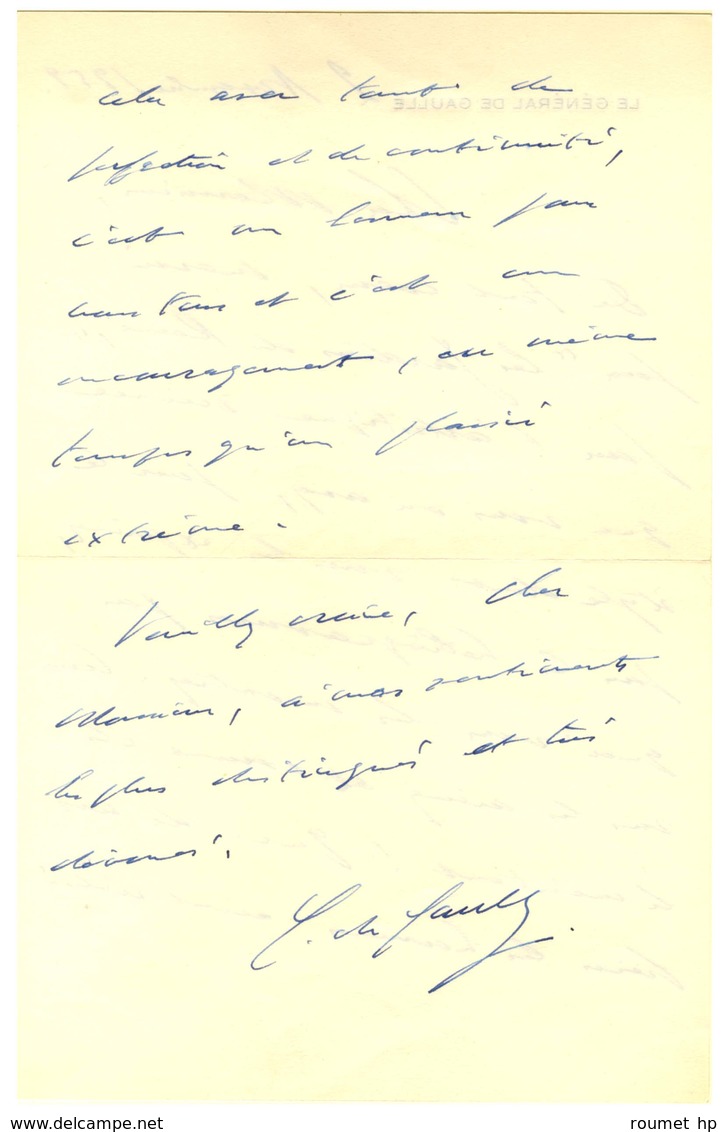 cela avec tant de
perfection et de continuité,
c'est un honneur pour
nous tous et c'est un
encouragement, en même
temps qu'un plaisir
extrême.
Veuillez croire, cher
Monsieur, à mes sentiments
les plus distingués et très
dévoués.
C. de Gaulle
LE GÉNÉRAL DE GAULLE
roumet hp